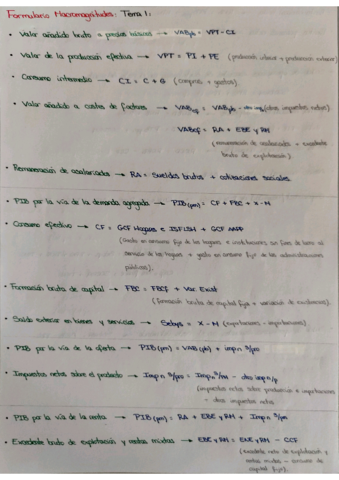 Formulario Macromagnitudes: Tema 1:
• Valor añadido bruto a precios básicos → VABpb = VPT - CI
• Valor de la producción efectiva → VPT = PI + PE (producción interior + producción exterior)
• Consumo intermedio → CI = C + G (compras + gastos).
• Valor añadido a costes de factores → VABcf = VABpb - otros imp (otros impuestos netos).
VABcf = RA + EBE y RM
(remuneración de asalariados + excedente
bruto de explotación)
• Remuneración de asalariados → RA = Sueldos brutos + cotizaciones sociales
• PIB por la vía de la demanda agregada → PIB(pm) = CF + FBC + X - M
• Consumo efectivo → CF = GCF Hogares e ISFLSH + GCF AAPP
(Gasto en consumo final de los hogares e instituciones sin fines de lucro al
servicio de los hogares + gasto en consumo final de las administraciones
públicas).
• Formación bruta de capital → FBC = FBCF + Var. Exist
(formación bruta de capital fijo + variación de existencias).
• Saldo exterior en bienes y servicios → Sebys = X - M (exportaciones - importaciones).
• PIB por la vía de la oferta → PIB(pm) = VAB(pb) + impn s/pro
• Impuestos netos sobre el producto → Impn s/pro = Impn s/PM - otros impn/p
(impuestos netos sobre producción e importaciones
- otros impuestos netos.
• PIB por la vía de la renta → PIB(pm) = RA + EBE y RM + Impn s/pm
• Excedente bruto de explotación y rentas mixtas → EBE y RM = ENE y RM - CCF
(excedente neto de explotación y
rentas mixtas - consumo de
capital fijo).